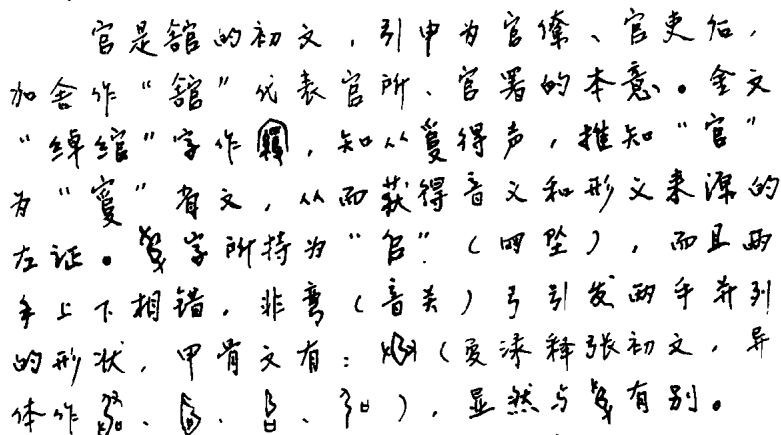 官是舘的初文，引申为官僚、官吏后，
加舍作“舘”代表官所、官署的本意。金文
“绰绾”字作，知从得声，推知“官”
为“”省文，从而获得音义和形义来源的
左证。字所持为“𠂤”（四坠），而且两
手上下相错，非弯（音关）弓引发两手并列
的形状，甲骨文有：（夏渌释张初文，异
体作、、、），显然与有别。